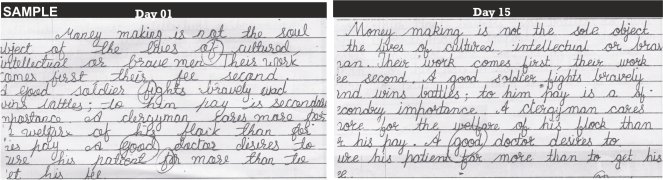 SAMPLE Day 01
Money making is not the soul
object of the lives of cultured
intellectual or brave men Their work
comes first their fee second
A good soldier fights bravely and
wins battles; to him pay is secondary
importance A clergyman cares more for
welfare of his flock than
his pay. A good doctor disires to
cure his patient for more than to
get his fee
Day 15
Money making is not the sole object
the lives of cultured intellectual or brav
man. Their work comes first, their work
ee second. A good soldier fights bravely
nd wins battles; to him pay is a se
condry importance. A clergyman cares
more for the welfare of his flock than
r his pay. A good doctor desires to
ure his patient for more than to get his